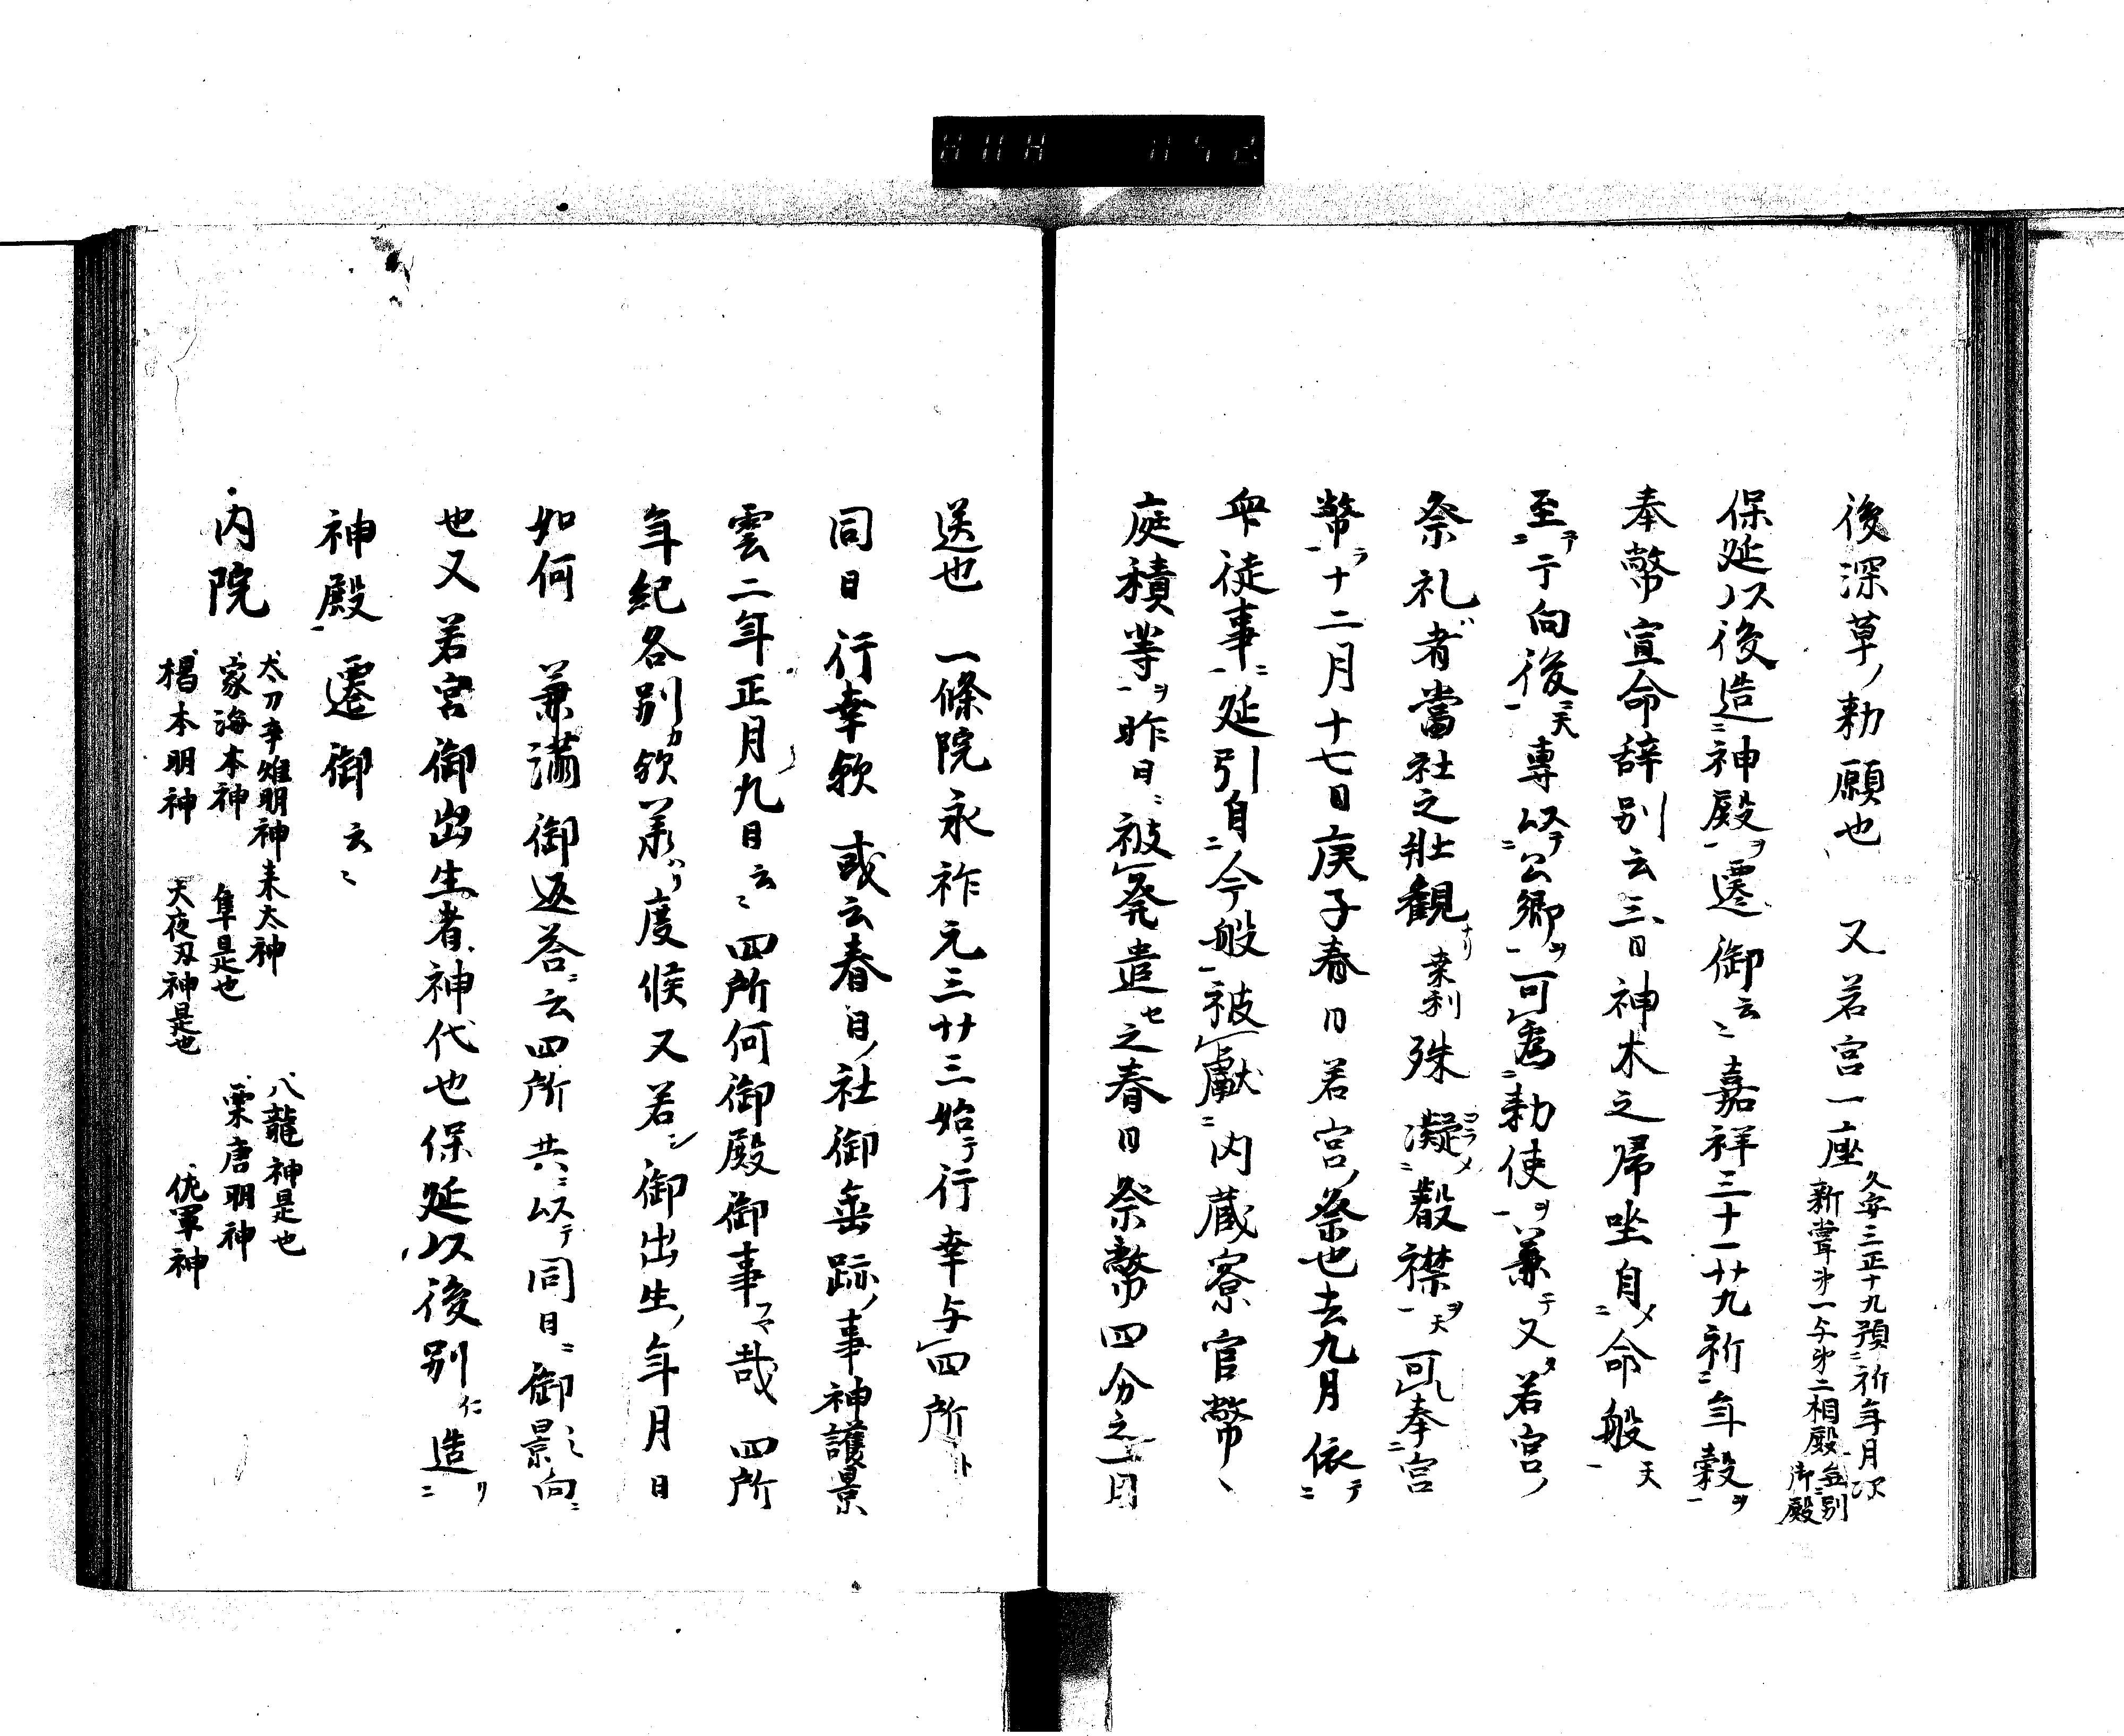 後深草ノ勅願也　又若宮一座
久安三正十九預ニ祈年月次
新甞第一与第二相殿
無別
御殿
保延以後造ニ神殿ヲ遷御云〻嘉祥三十一廿九祈ニ年穀ヲ
奉幣宣命辞別云三日神木之帰坐自メ命般天
至ヲ于向後天専以テ公卿ヲ可為勅使ヲ兼テ又若宮ノ
祭礼者當社之壯観ナリ 殊凝コラメ襟ヲ天可奉宮
幣ヲ十二月十七日庚子春日若宮ノ祭也去九月依テ
衆徒事延引自今般被獻内蔵寮官幣
庭積等ヲ昨日被発遣セ之春日祭幣四分之一用
送也　一條院永祚元三廿三始テ行幸与四所ト
同日行幸歟　或云春日ノ社御垂跡ノ事神護景
雲二年正月九日云〻四所何御殿御事哉　四所
年紀各別歟　度候又若シ御出生ノ年月日
如何　兼滿御返荅云四所共以テ同日御影向
也又若宮御出生者神代也保延以後別仁造リ
神殿遷御云〻
内院
太刀辛雄明神 太神
八龍神是也
家海本神
隼是也
栗唐明神
椙本明神
大夜刄神是也
佐軍神